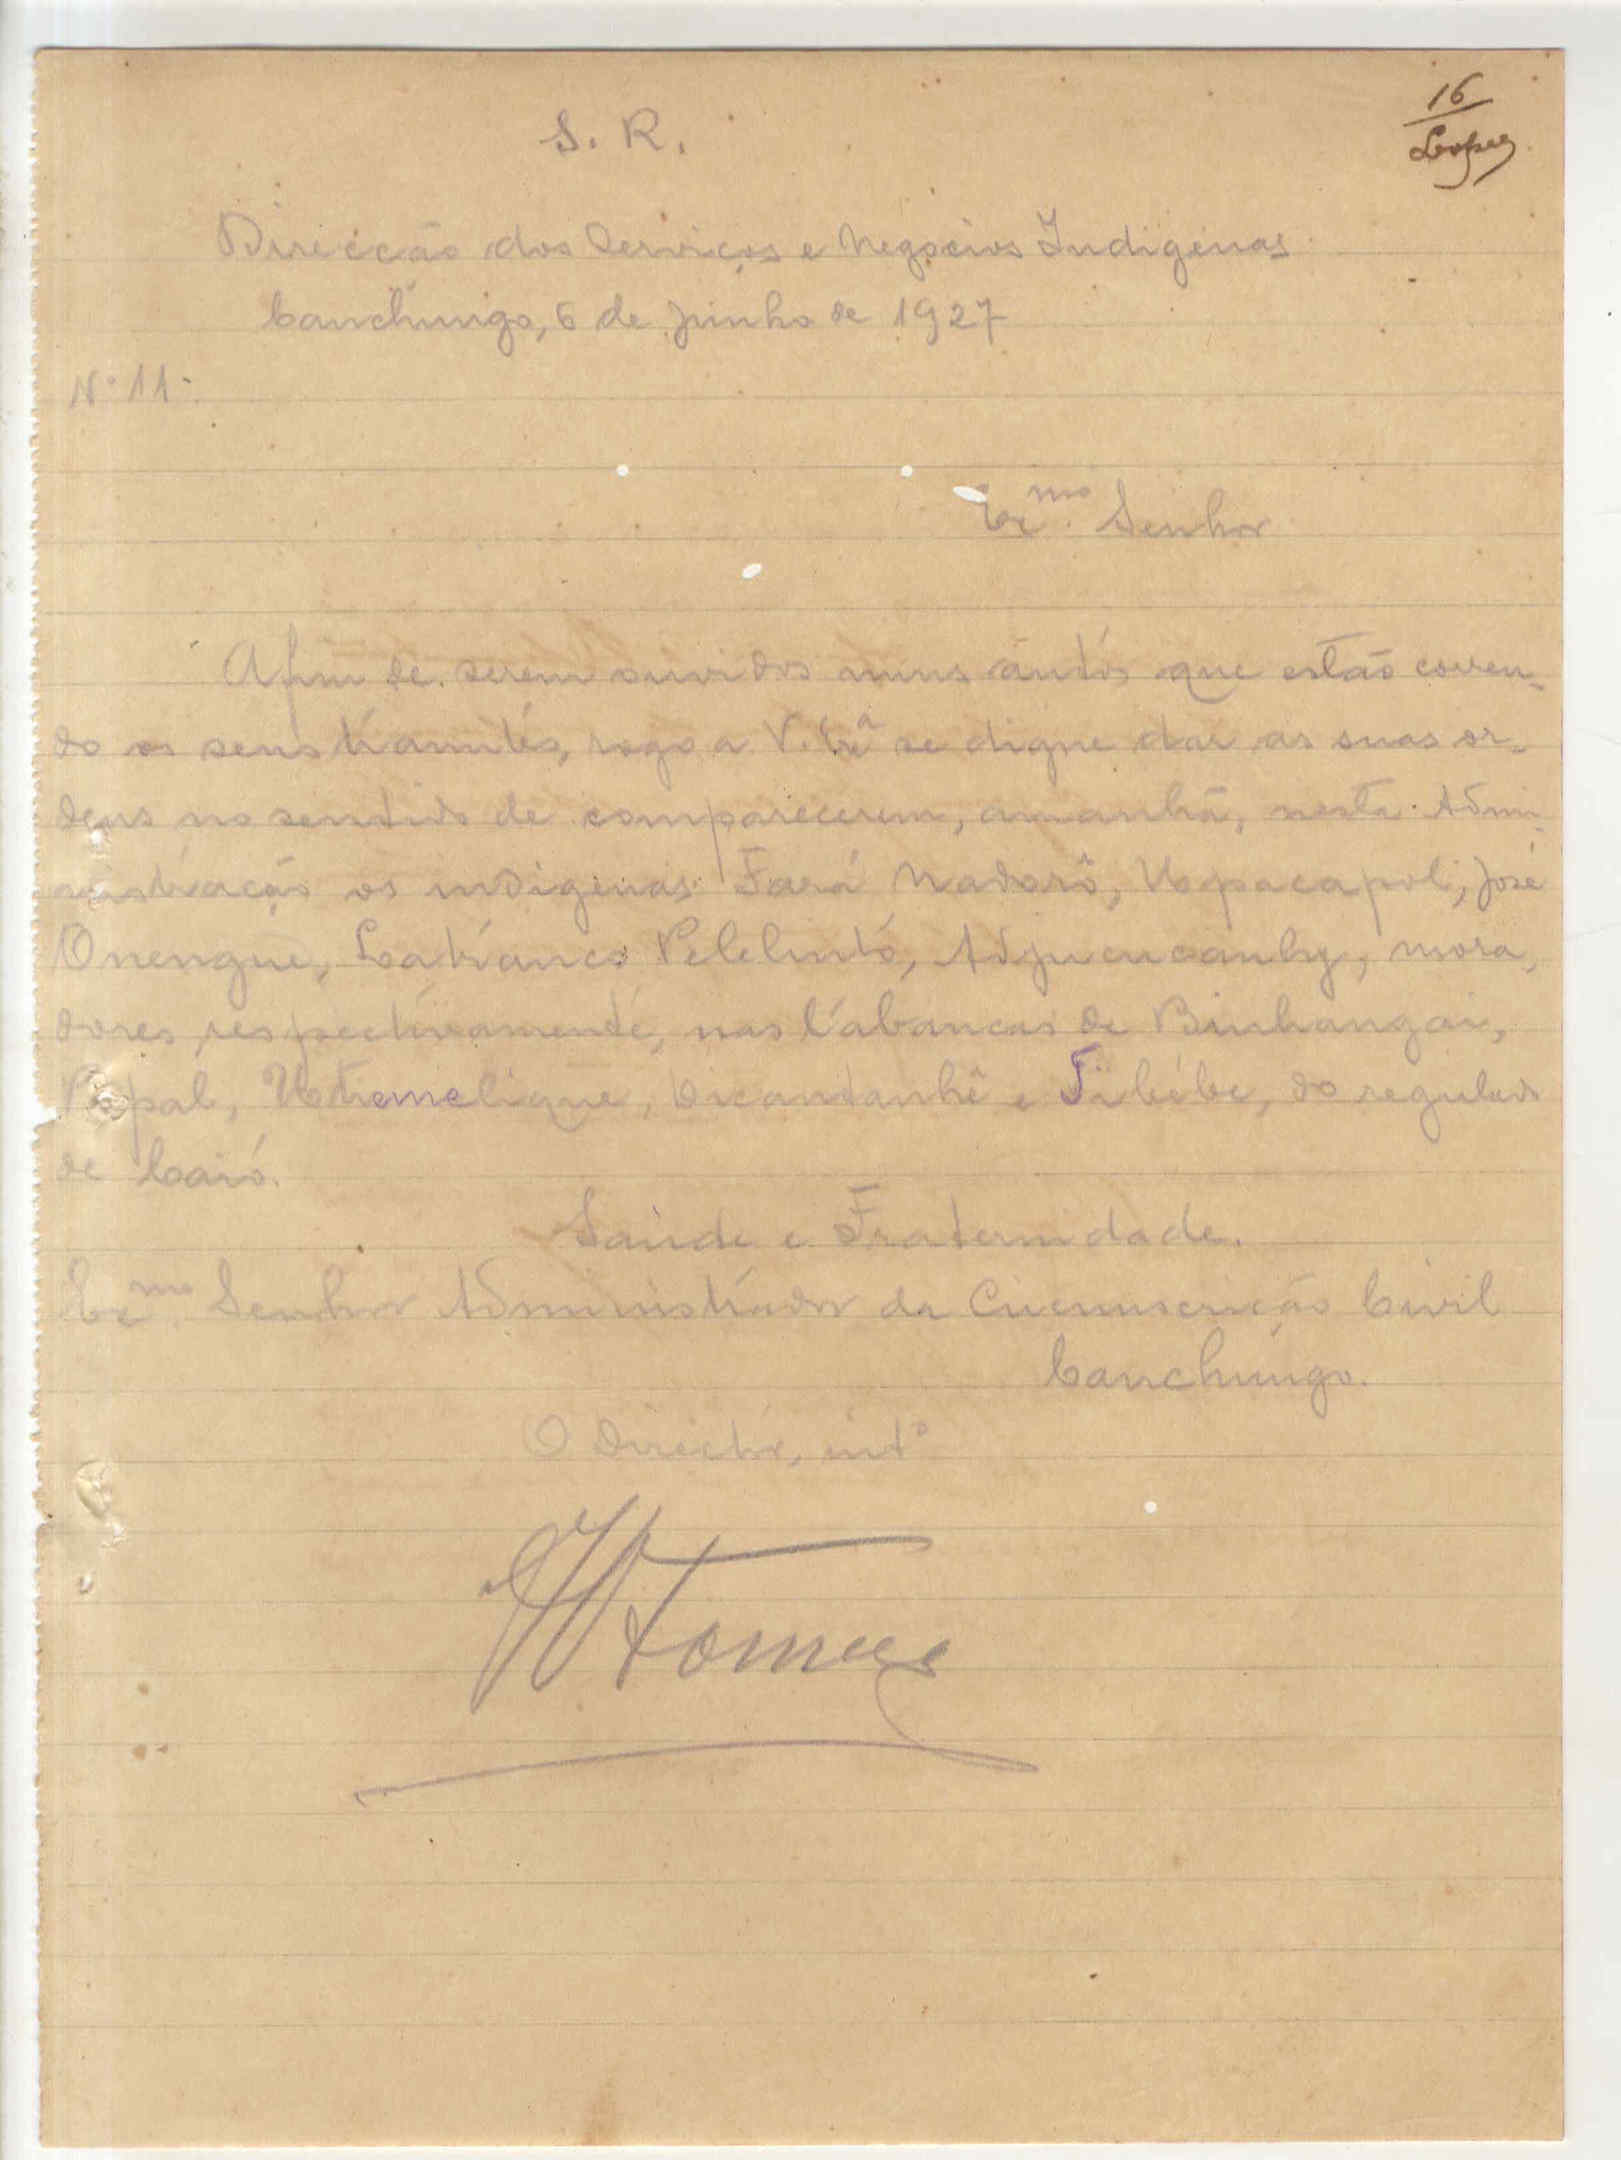 16
Lopes
S. R.
Direcção dos Serviços e Negocios Indigenas
Canchungo, 6 de junho de 1927
Nº 11-
Exmo. Senhor
Afim de serem ouvidos nuns autos que estão corren-
do os seus tramites, rogo a V. Exª se digne dar as suas or-
dens no sentido de comparecerem, amanhã, nesta Admi-
nistração os indigenas: Fará Nadorô, Upacapol, José
Onengue, Latranco Pelelintó, Adjucucanhy, mora-
dores respectivamente, nas tabancas de Binhangai,
Pepal, Utremelique, Dicantanhê e Tibébe, do regulado
de Caió.
Saúde e Fraternidade.
Exmo. Senhor Administrador da Circunscrição Civil
Canchungo.
O Director, intº